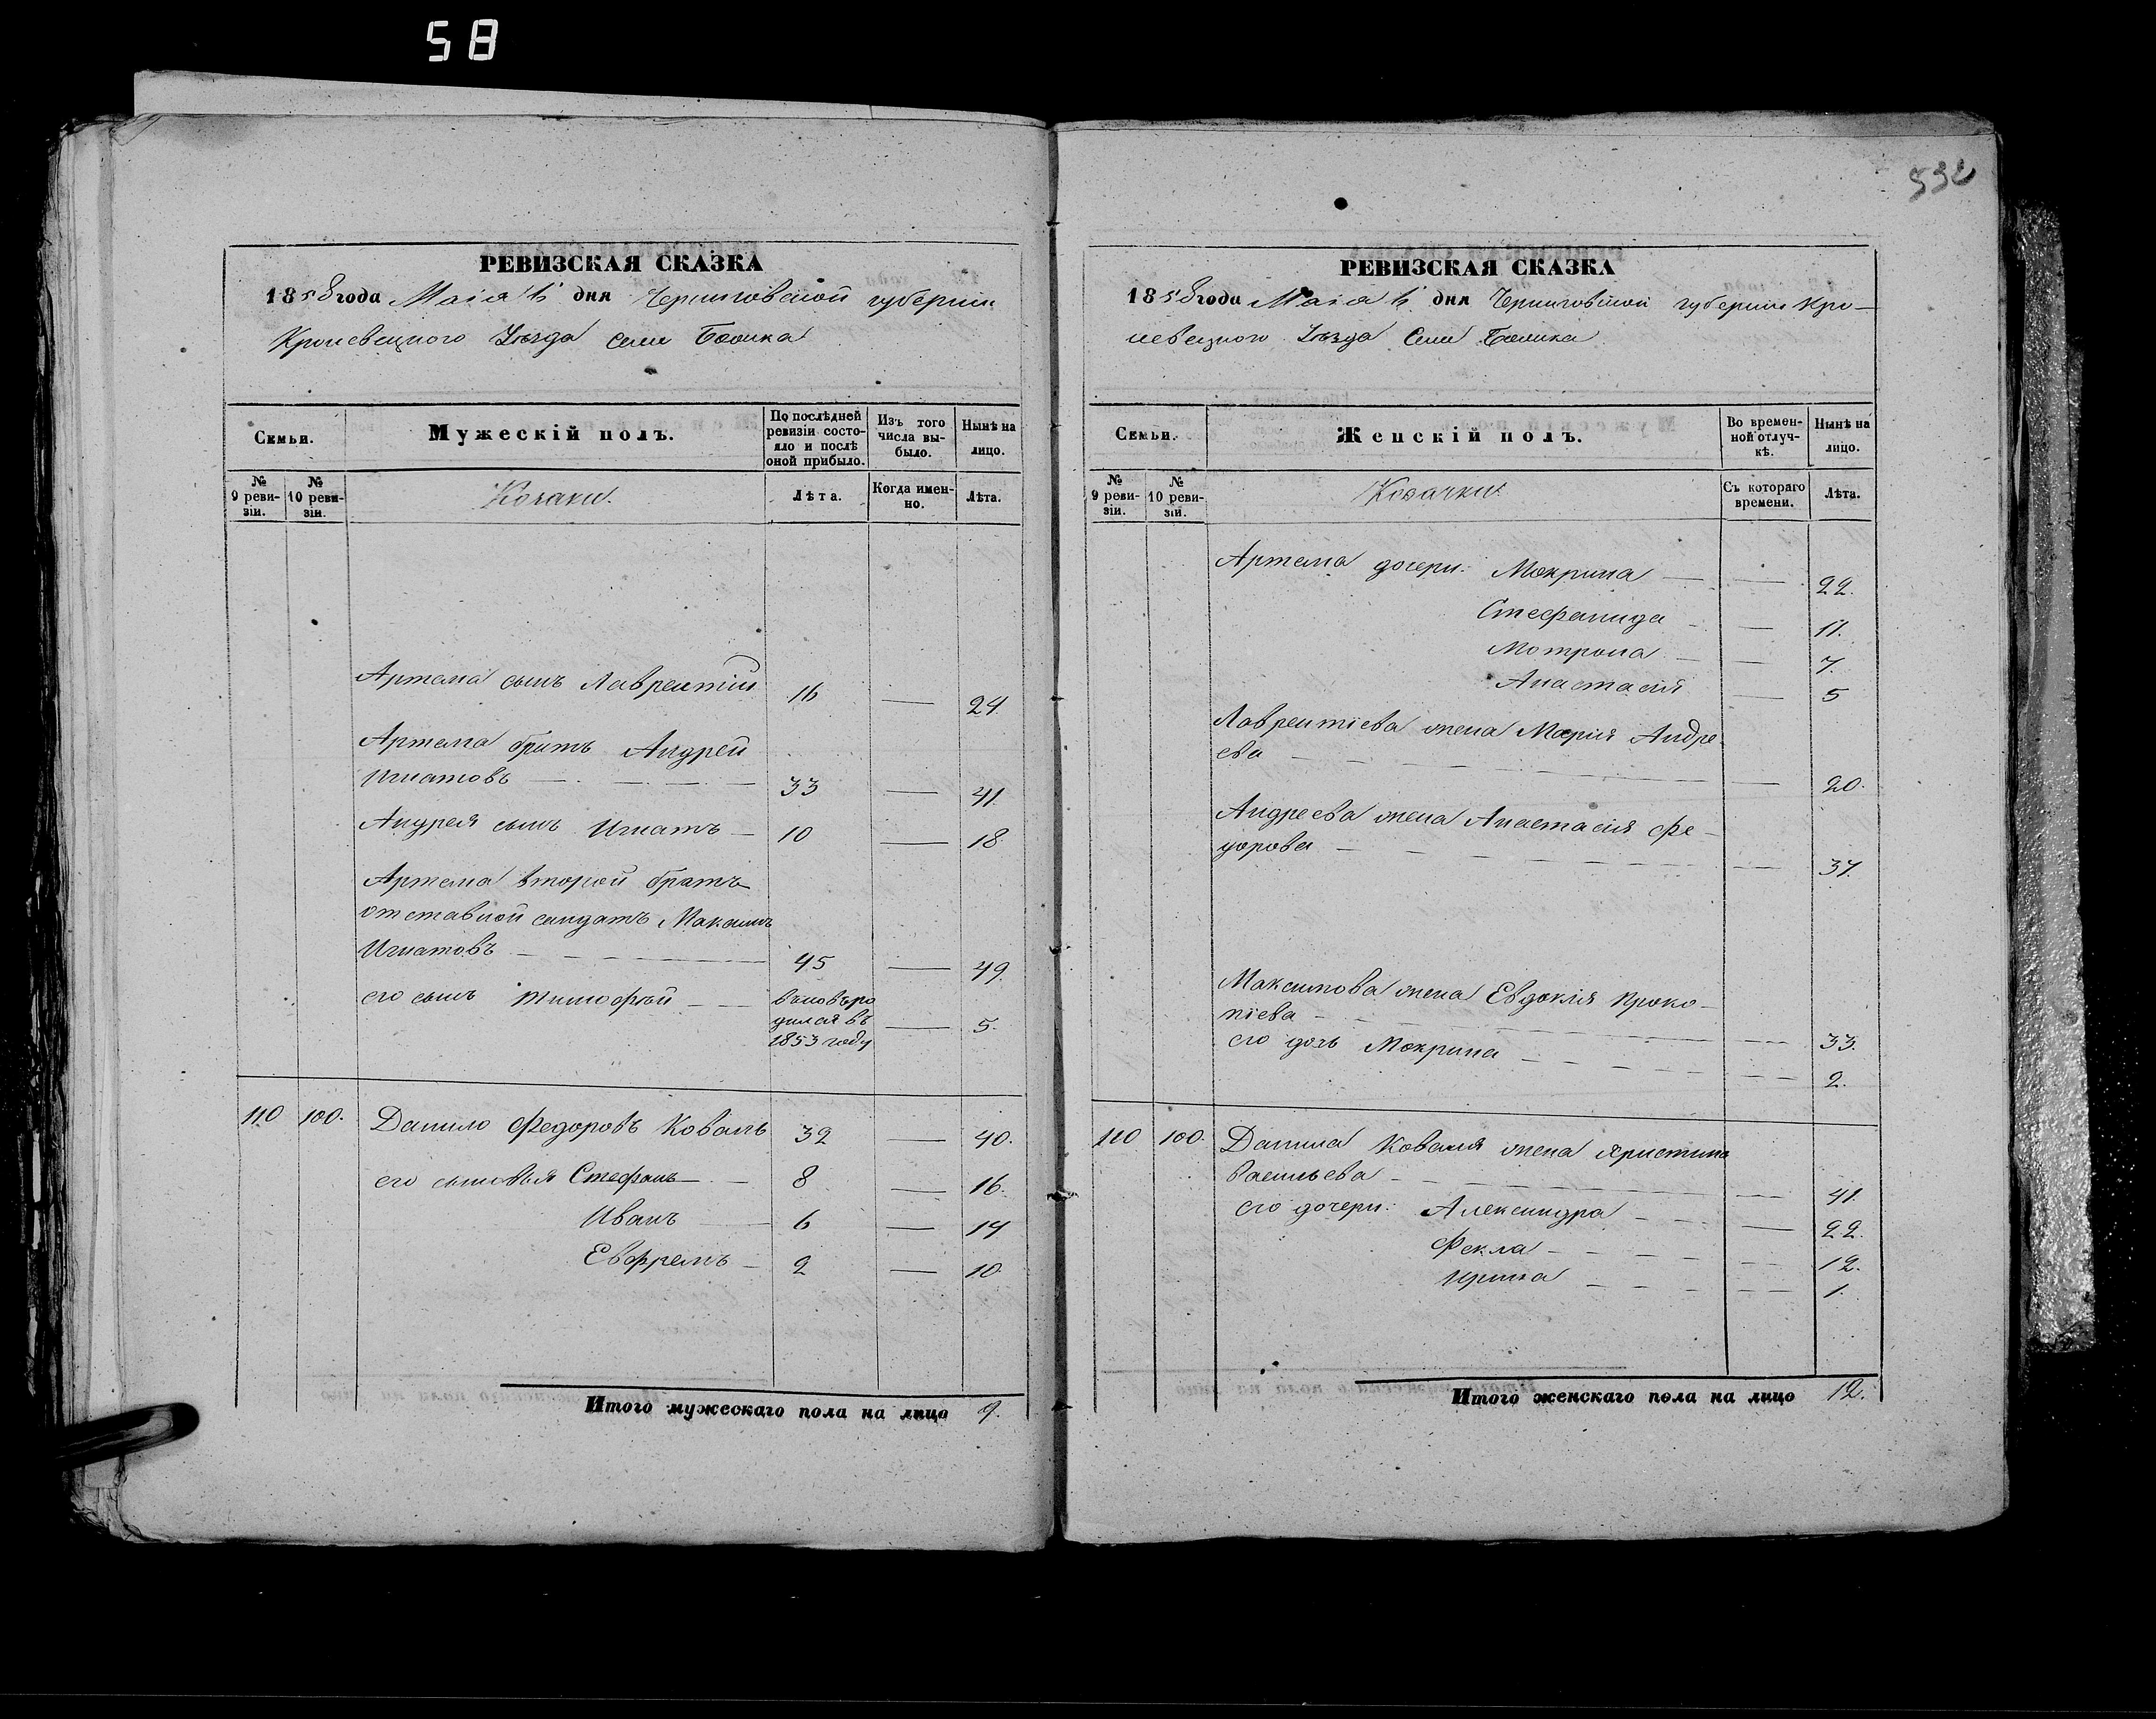 58
532
РЕВИЗСКАЯ СКАЗКА
1858 года Маiя 6 дня Черниговской губернiи
Кролевецкого Уѣзда села
Семьи.
Мужескiй полъ.
По послѣдней ревизiи состо-
яло и послѣ
оной прибыло.
Изъ того
числа вы-
было.
Нынѣ на
лицо.
№
9 реви-
зiи.
№
10 реви-
зiи.
Козаки.
Лѣта.
Когда имен-
но.
Лѣта.
Артема сынъ Лаврентiй 16 — 24.
Артема братъ Андрей
Игнатовъ — 33 — 41.
Андрея сынъ Игнатъ — 10 — 18.
Артема второй братъ
отставной солдатъ Максимъ
Игнатовъ — 45 — 49.
его сынъ Тимофѣй — вновь ро
дился въ
1853 году — 5.
110 100. Данило Федоровъ Коваль 32 — 40.
его сыновья Стефанъ — 8 — 16.
Иванъ — 6 — 14
Евфремъ — 2 — 10.
Итого мужескаго пола на лицо 9.
РЕВИЗСКАЯ СКАЗКА
1858 года Маiя 6 дня Черниговской губернiи Кро-
левецкого Уѣзда Села
Семьи.
Женскiй полъ.
Во времен-
ной отлуч-
кѣ.
Нынѣ на
лицо.
№
9 реви-
зiи.
№
10 реви-
зiи.
Козачки.
Съ котораго
времени.
Лѣта.
Артема дочери: Мокрина — 22.
Стефанида — 11.
Мотрона — 7.
Анастасiя — 5
Лаврентiева жена Марiя Андре-
ева — 20.
Андреева жена Анастасiя Фе-
дорова — 37.
Максимова жена Евдокiя Проко-
пiева — 33.
его дочь Мокрина — 2.
110 100. Данила Коваля жена Христина
Васильева — 41.
его дочери: Александра — 22.
Фекла — 12.
Ирина — 1.
Итого женскаго пола на лицо 12.